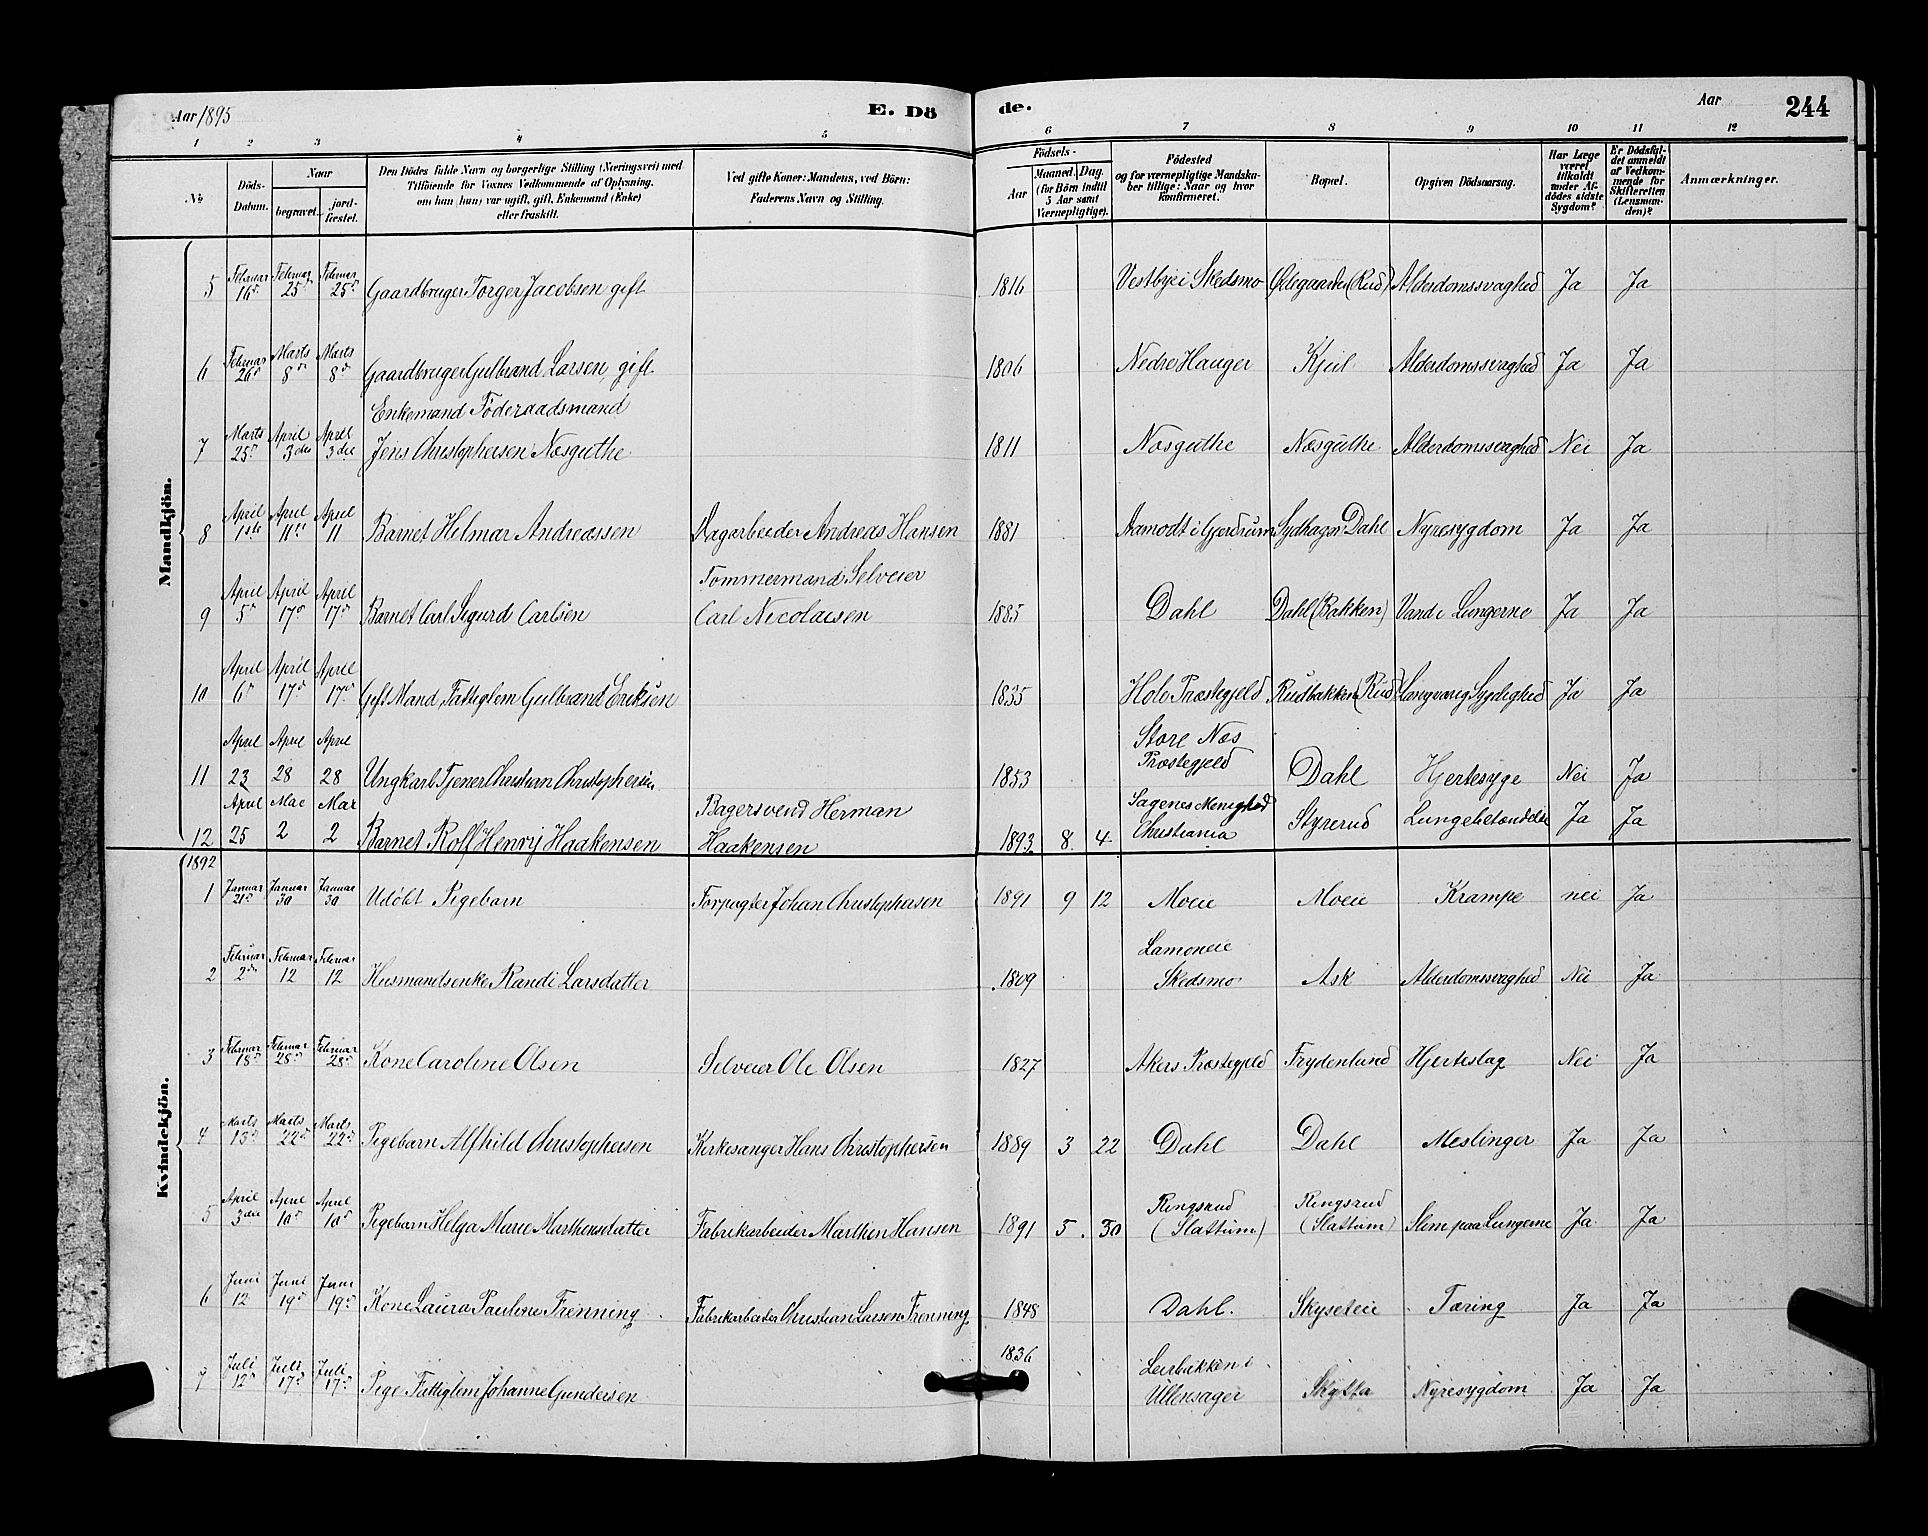 Aar 1895
E. Dö
de.
Aar
244
1 2 3 4 5 6 7 8 9 10 11 12
№
Döds-
Datum.
Naar
begravet.
jord-
fæstet.
Den Dödes fulde Navn og borgerlige Stilling (Næringsvei) med
Tilföiende for Voxnes Vedkommende af Oplysning,
om han (hun) var ugift, gift, Enkemand (Enke)
eller fraskilt.
Ved gifte Koner: Mandens, ved Börn:
Faderens Navn og Stilling.
Födsels-
Aar
Maaned. Dag.
(for Börn indtil
5 Aar samt
Værnepligtige).
Födested
og for værnepligtige Mandska-
ber tillige: Naar og hvor
konfirmeret.
Bopæl.
Opgiven Dödsaarsag.
Har Læge
været
tilkaldt
under Af-
dödes sidste
Sygdom?
Er Dödsfal-
det anmeldt
af Vedkom-
mende for
Skifteretten
(Lensman-
den)?
Anmærkninger.
Mandkjön.
Februar Februar Februar
5 16d 25d 25d Gaardbruger Torger Jacobsen gift 1816 Vestbye i Skedsmo Ødegaarden (Rud) Alderdomssvaghed Ja Ja
Februar Marts Marts
6 26d 8d 8d Gaardbruger Gulbrand Larsen, gift 1806 Nedre Hauger Kjul Alderdomssvaghed Ja Ja
Enkemand Föderaadsmand
Marts April April
7 25d 3die 3die Jens Christophersen Næsguthe 1811 Næsguthe Næsguthe Alderdomssvaghed Nei Ja
April April April
8 1ste 11te 11 Barnet Helmar Andreassen Dagarbeider Andreas Hansen 1881 Aamodt i Gjerdrum Sydhagen Dahl Nyresygdom Ja Ja
Tømmermand Selveier
April April April
9 5d 17d 17d Barnet Carl Sigurd Carlsen Carl Nicolaisen 1885 Dahl Dahl (Bakken) Vand i Lungerne Ja Ja
April April April
10 6d 17d 17d Gift Mand, Fattiglem Gulbrand Eriksen 1835 Hole Præstegjeld Rudbakken (Rud) Langvarig Sygelighed Ja Ja
April April April Store Næs
Præstegjeld
11 23 28 28 Ungkarl Tjener Christian Christophersen 1853 Dahl Hjertesyge Nei Ja
April Mai Mai Bagersvend Herman Sagenes Menighed
12 25 2 2 Barnet Rolf Henry Haakensen Haakensen 1893 8 4 Christiania Styrerud Lungebetændelse Ja Ja
Kvindekjön.
1892
Januar Januar Januar
1 21d 30 30 Udöbt Pigebarn Forpagter Johan Christophersen 1891 9 12 Moeie Moeie Krampe nei Ja
Februar Februar Februar Lamoneie
2 2den 12 12 Husmandsenke Randi Larsdatter 1809 Skedsmo Ask Alderdomssvaghed Nei Ja
Februar Februar Februar
3 18d 28d 28d Kone Caroline Olsen Selveier Ole Olsen 1827 Akers Præstegjeld Frydenlund Hjerteslag Nei Ja
Marts Marts Marts
4 13d 22d 22d Pigebarn Alfhild Christophersen Kirkesanger Hans Christophersen 1889 3 22 Dahl Dahl Meslinger Ja Ja
April April April Ringsrud Ringsrud
5 3die 10d 10d Pigebarn Helga Marie Marthensdatter Fabrikarbeider Marthen Hansen 1891 5 30 (Slattum) (Slattum) Slim paa Lungerne Ja Ja
Juni Juni Juni
6 12 19d 19d Kone Laura Pauline Frenning Fabrikarbeider Christian Larsen Frenning 1848 Dahl. Skyseteie Tæring Ja Ja
Juli Juli Juli 1836 Leirbakken i
7 12d 17d 17d Pige Fattiglem Johanne Gundersen Ullensager Skytta Nyresygdom Ja Ja